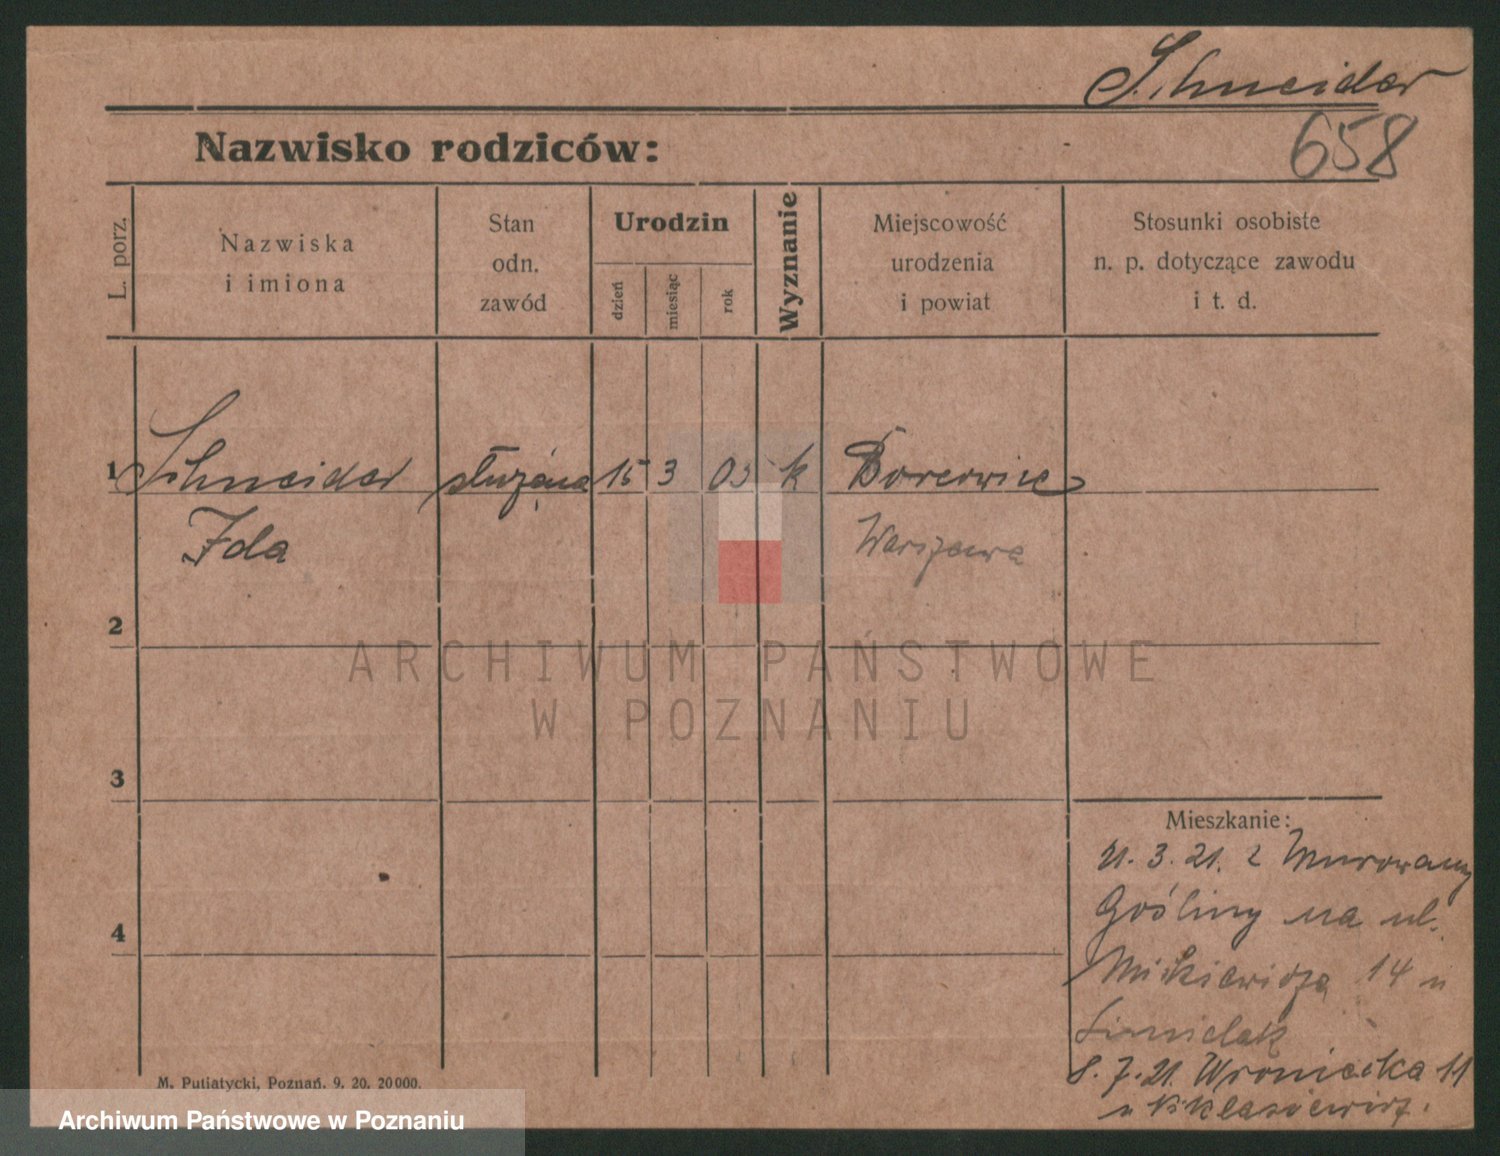 Schneider
658
Nazwisko rodziców:
L. porz.
Nazwiska
i imiona
Stan
odn.
zawód
Urodzin
dzień
miesiąc
rok
Wyznanie
Miejscowość
urodzenia
i powiat
Stosunki osobiste
n. p. dotyczące zawodu
i t. d.
1
Schneider służąca 15 3 03 k
Ida Warszawa
2
ARCHIWUM PAŃSTWOWE
W POZNANIU
3
Mieszkanie:
21. 3. 21. z Murowany
4
Gośliny na ul.
Mickiewicza 14 u
8. 7. 21. Wroniecka 11
M. Putiatycki, Poznań. 9. 20. 20000.
Archiwum Państwowe w Poznaniu